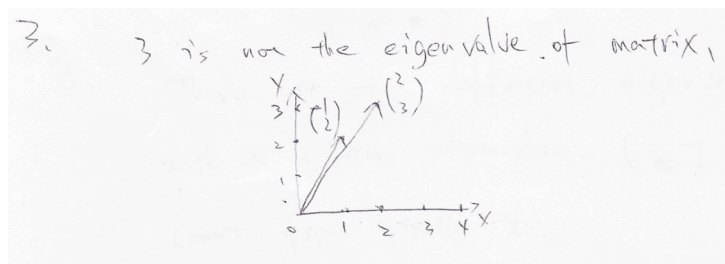 3.
3 is not the eigenvalue of matrix,
Y
3 (1 2) (2 3)
2
1
0 1 2 3 4 X